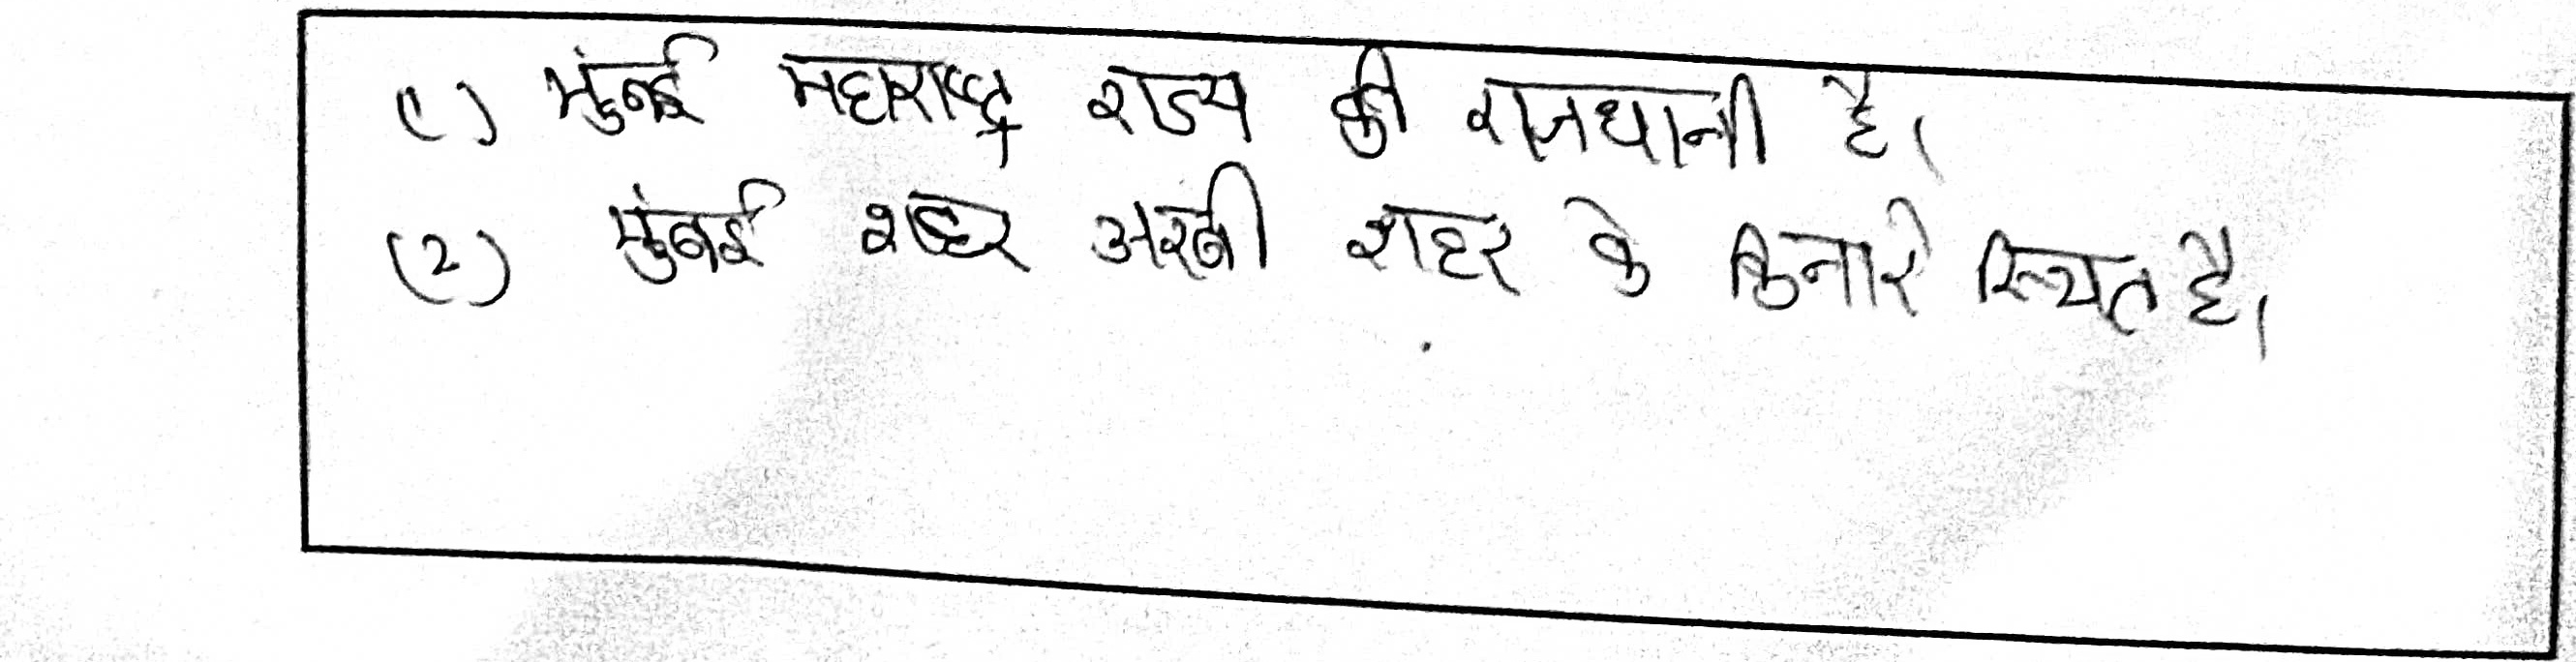 (१) मुंबई महाराष्ट्र राज्य की राजधानी है।
(2) मुंबई शहर अरबी शहर के किनारे स्थित है।